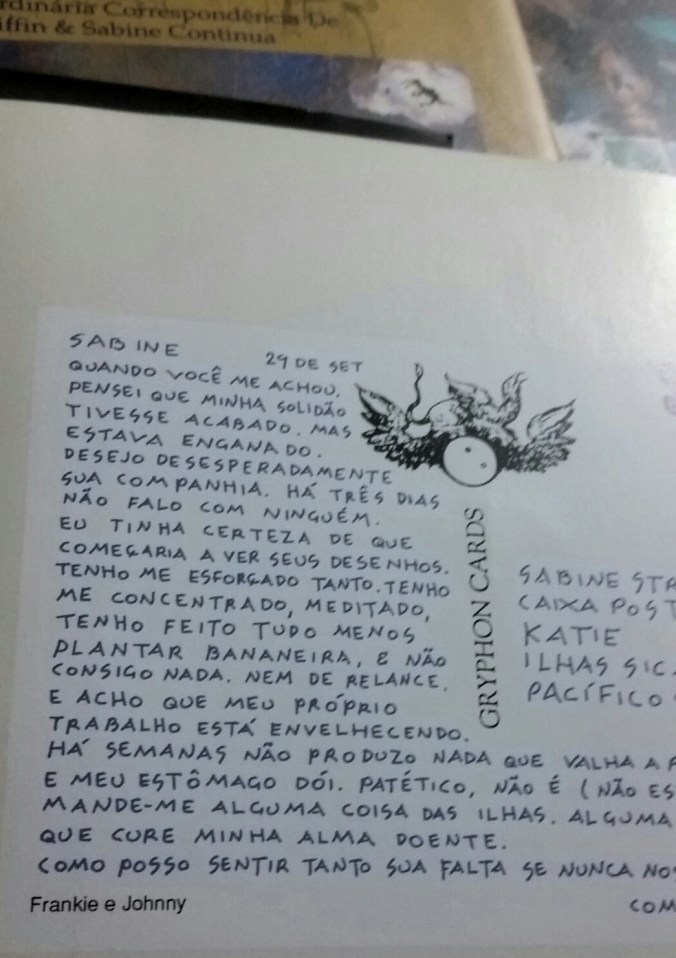 rdinária Correspondência De
iffin & Sabine Continua
SABINE
29 DE SET
QUANDO VOCÊ ME ACHOU,
PENSEI QUE MINHA SOLIDÃO
TIVESSE ACABADO. MAS
ESTAVA ENGANADO.
DESEJO DESESPERADAMENTE
SUA COMPANHIA. HÁ TRÊS DIAS
NÃO FALO COM NINGUÉM.
EU TINHA CERTEZA DE QUE
COMEÇARIA A VER SEUS DESENHOS.
TENHO ME ESFORÇADO TANTO. TENHO
ME CONCENTRADO, MEDITADO,
TENHO FEITO TUDO MENOS
PLANTAR BANANEIRA, E NÃO
CONSIGO NADA. NEM DE RELANCE.
E ACHO QUE MEU PRÓPRIO
TRABALHO ESTÁ ENVELHECENDO.
HÁ SEMANAS NÃO PRODUZO NADA QUE VALHA A P
E MEU ESTÔMAGO DÓI. PATÉTICO, NÃO É (NÃO ES
MANDE-ME ALGUMA COISA DAS ILHAS. ALGUMA
QUE CURE MINHA ALMA DOENTE.
COMO POSSO SENTIR TANTO SUA FALTA SE NUNCA NO
COM
GRYPHON CARDS
SABINE STR
CAIXA POST
KATIE
ILHAS SIC
PACÍFICO
Frankie e Johnny